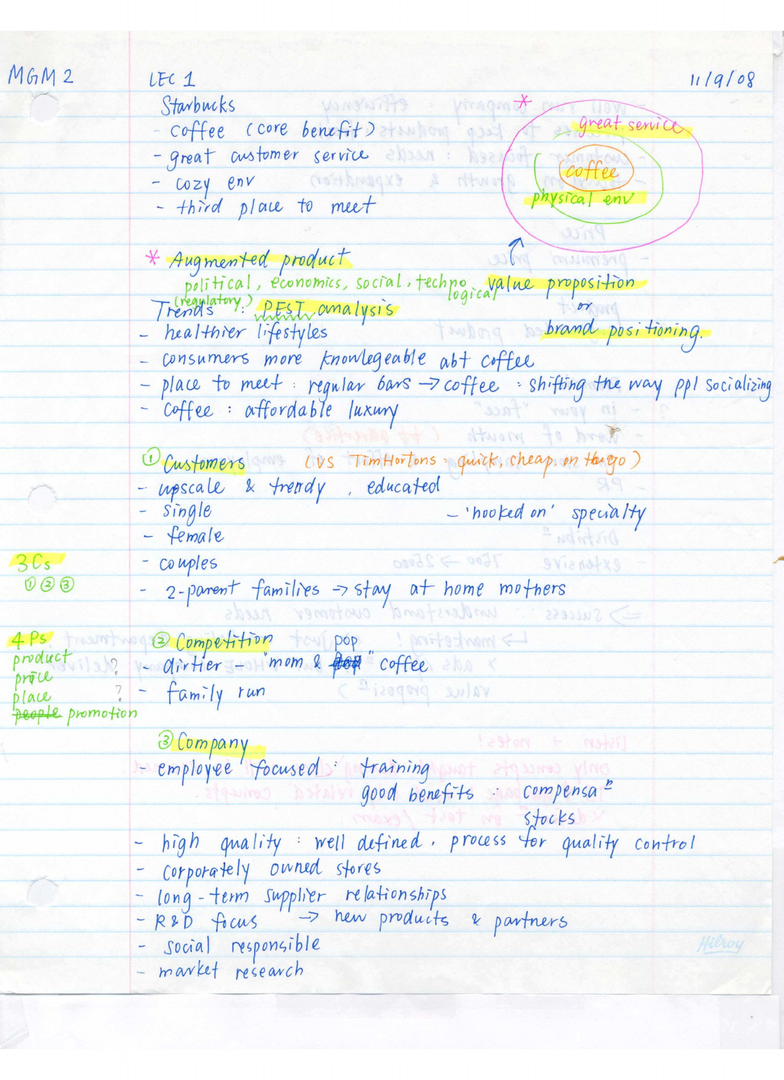 MGM 2
LEC 1
11/9/08
Starbucks
- coffee (core benefit)
- great customer service
- cozy env
- third place to meet
*
great service
coffee
physical env
* Augmented product
political, economics, social, technological
(regulatory)
value proposition
or
brand positioning.
Trends : PEST analysis
- healthier lifestyles
- consumers more knowlegeable abt coffee
- place to meet : regular bars → coffee : shifting the way ppl socializing
- Coffee : affordable luxury
① Customers (VS TimHortons : quick, cheap, on the go)
- upscale & trendy, educated
- single
- 'hooked on' specialty
- female
- couples
- 2-parent families → stay at home mothers
3Cs
① ② ③
4 Ps
product ?
price
place ?
people promotion
② Competition
- dirtier - "mom & pop" coffee
- family run
③ Company
- employee focused : training
good benefits : compensaⁿ
stocks
- high quality : well defined, process for quality control
- corporately owned stores
- long-term supplier relationships
- R&D focus → new products & partners
- social responsible
- market research
Hilroy